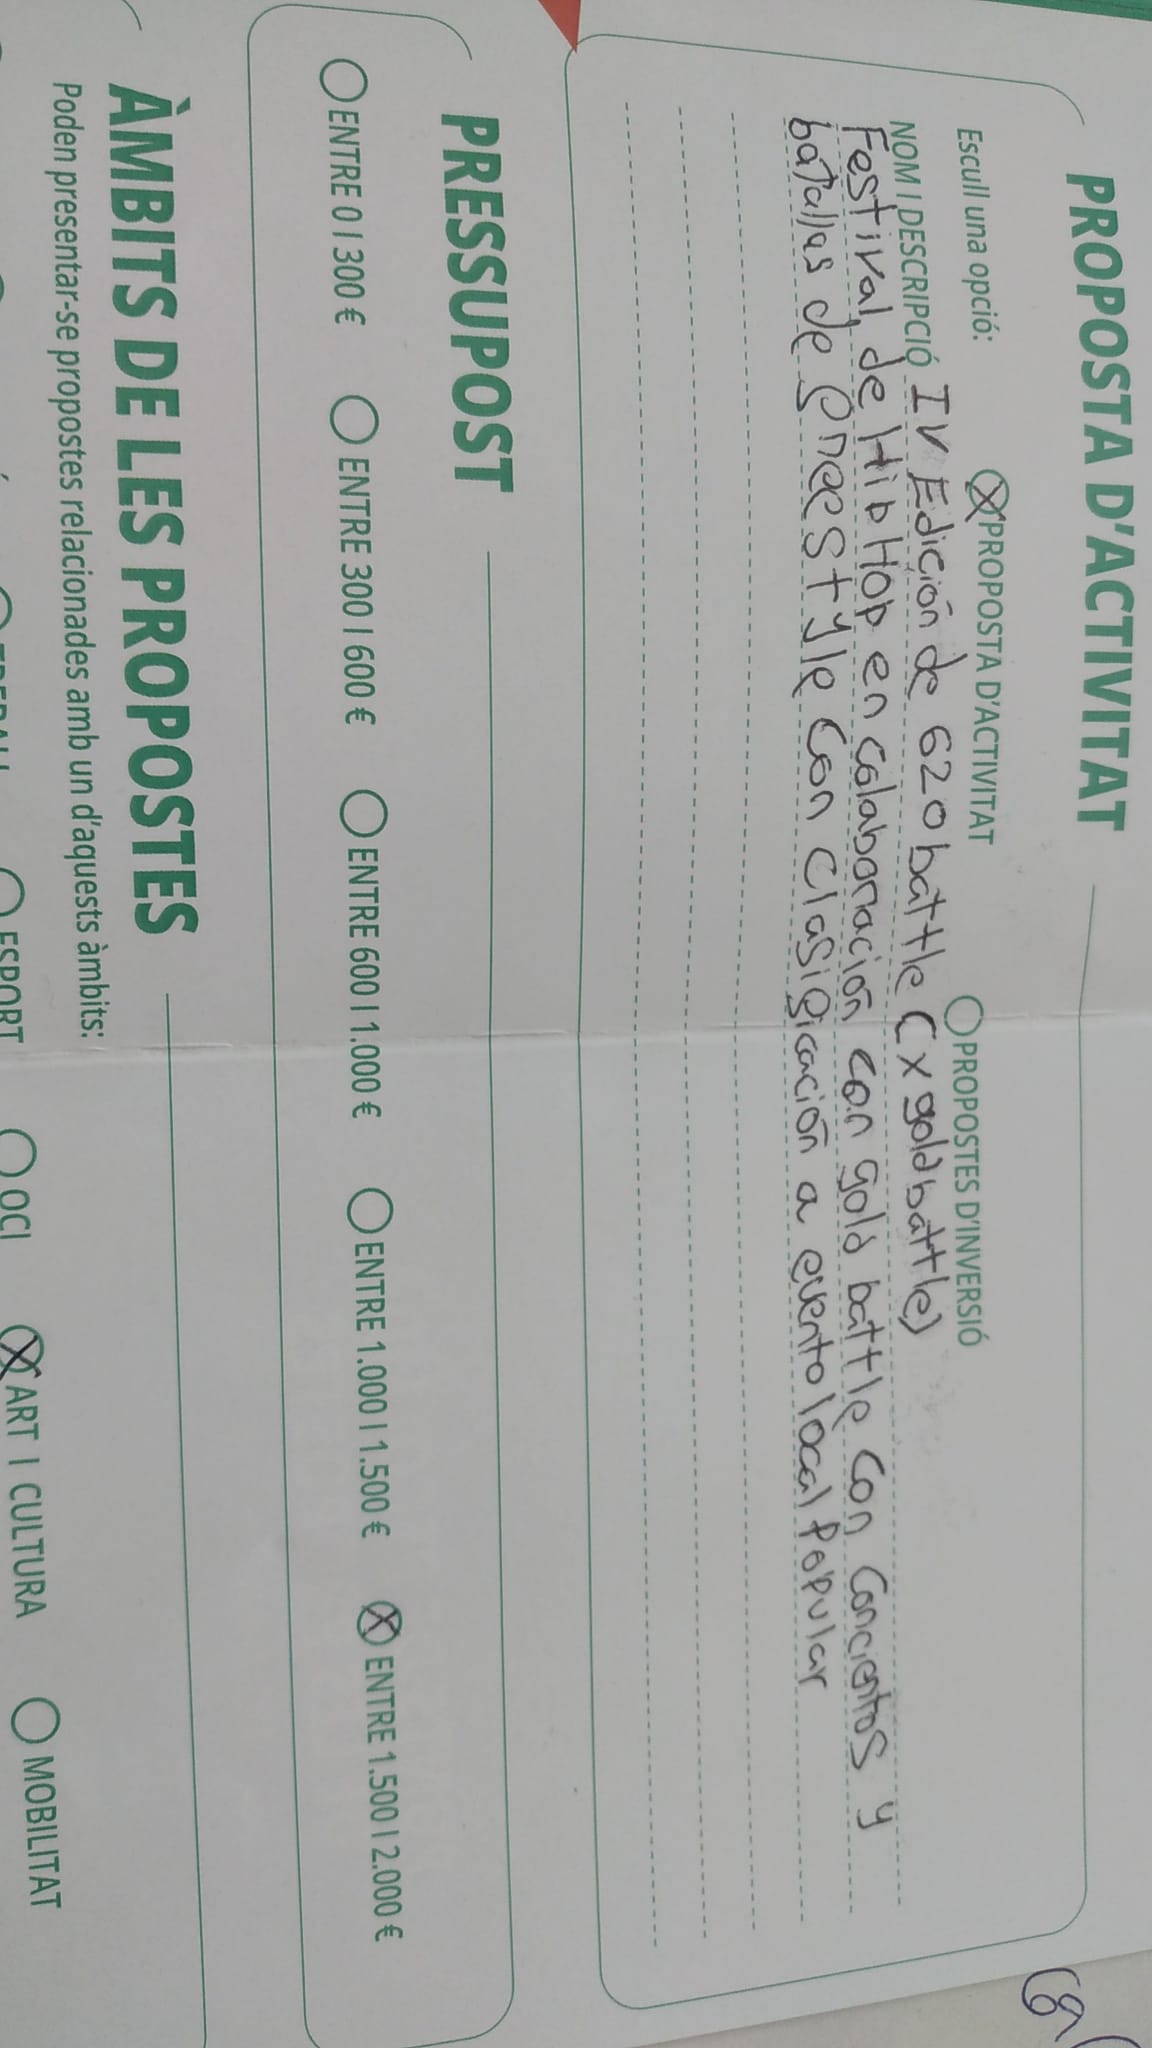 PROPOSTA D'ACTIVITAT
Escull una opció: PROPOSTA D'ACTIVITAT PROPOSTES D'INVERSIÓ
NOM I DESCRIPCIÓ IV Edición de 620battle (x goldbattle)
Festival de Hip Hop en colaboración con gold battle con concientos y
batallas de freestyle con clasificación a evento local Popular
PRESSUPOST
ENTRE 0 I 300 € ENTRE 300 I 600 € ENTRE 600 I 1.000 € ENTRE 1.000 I 1.500 € ENTRE 1.500 I 2.000 €
ÀMBITS DE LES PROPOSTES
Poden presentar-se propostes relacionades amb un d'aquests àmbits:
ESPORT OCI ART I CULTURA MOBILITAT